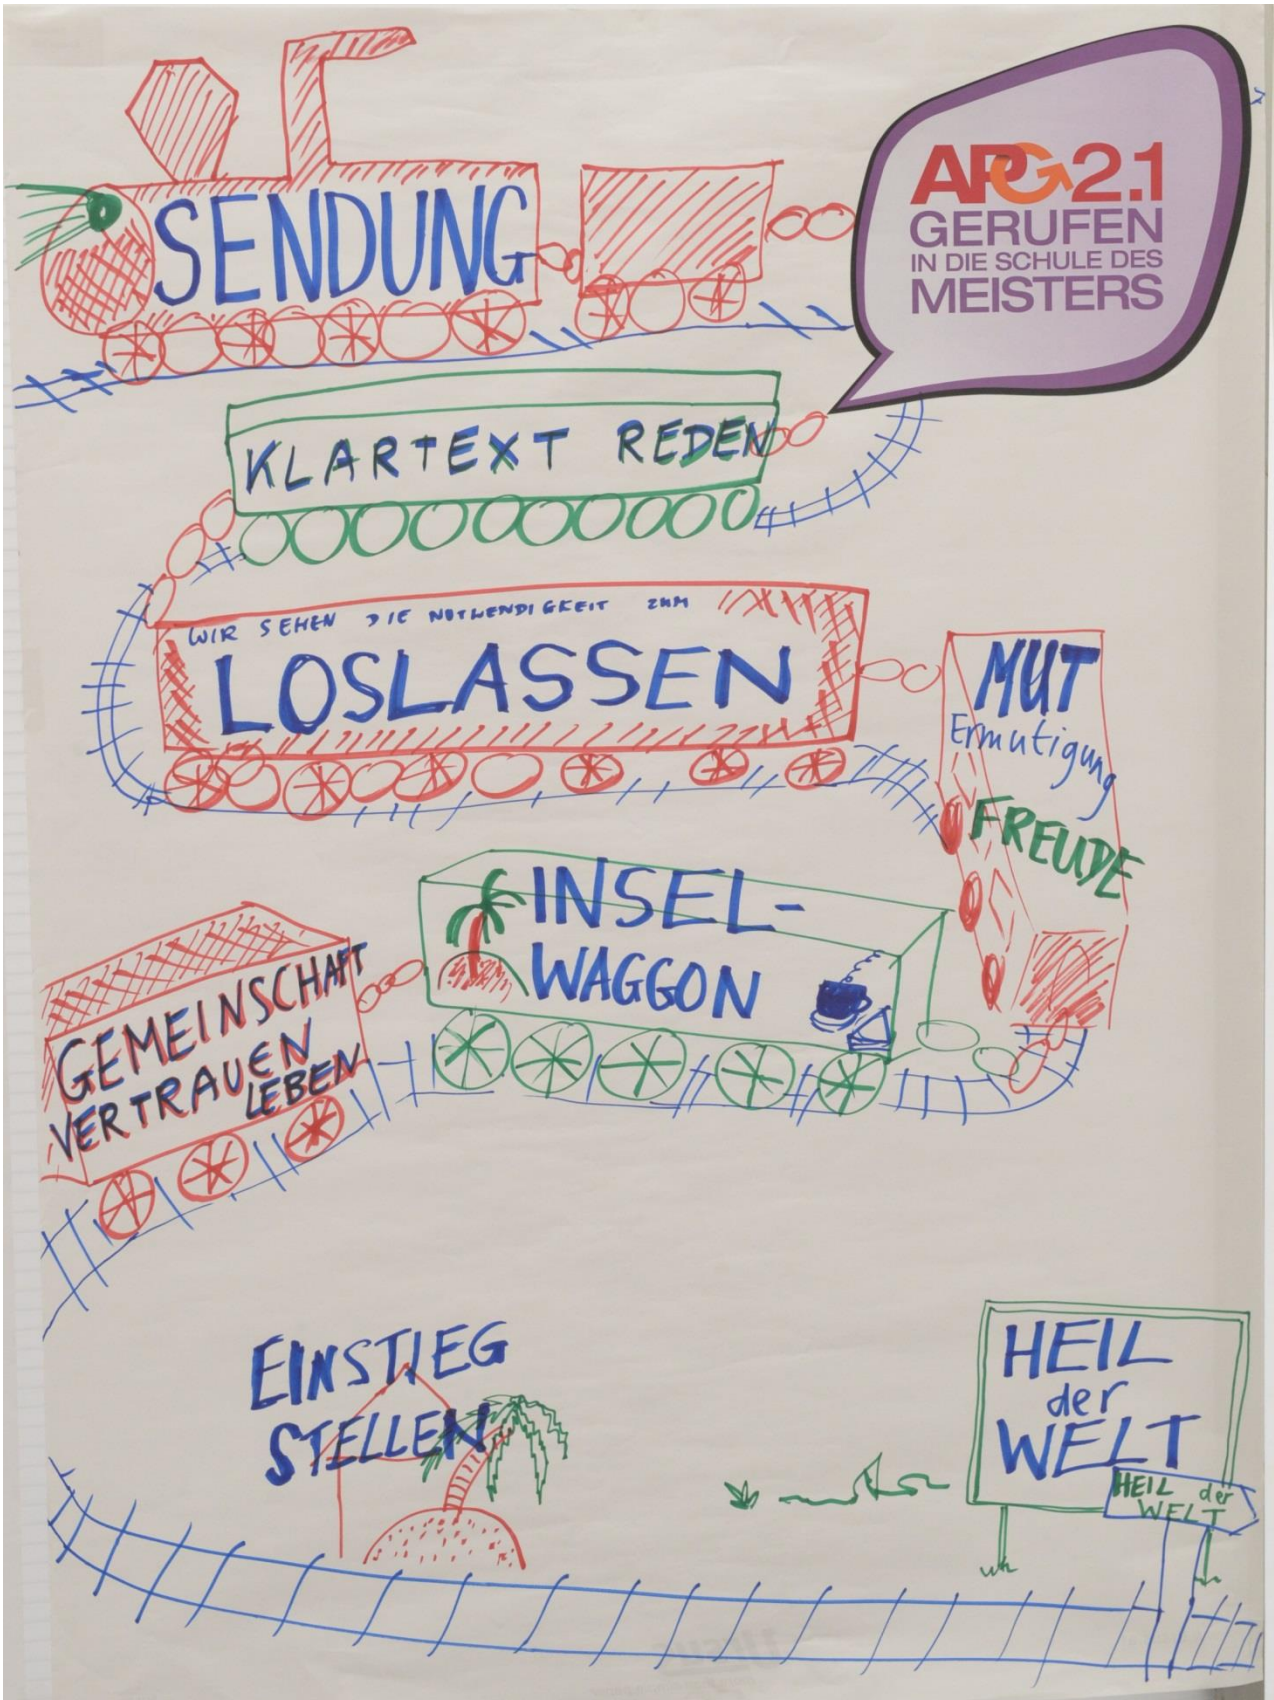 SENDUNG
APG2.1
GERUFEN
IN DIE SCHULE DES
MEISTERS
KLARTEXT REDEN
WIR SEHEN DIE NOTWENDIGKEIT ZUM
LOSLASSEN
MUT
Ermutigung
FREUDE
INSEL-
WAGGON
GEMEINSCHAFT
VERTRAUEN
LEBEN
EINSTIEG
STELLEN
HEIL
der
WELT
HEIL der
WELT